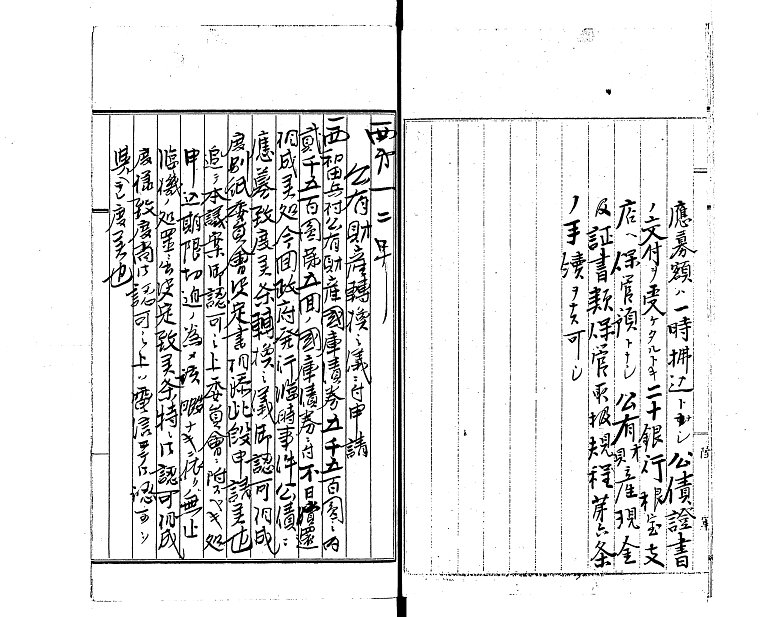 應募額ハ一時拂込トナシ公債證書
ノ交付ヲ受ケタルトキ二十銀行根室支
店ヘ保管預トナシ公有財産現金
及証書類保管取扱規程第六条
ノ手續ヲナス可シ
公有財産轉換之儀ニ付申請
西和田兵村公有財産國庫債券五千五百圓之内
貳千五百圓第五回ノ國庫債券ニ付不日償還
相成候処今回政府発行臨時事件公債ニ
應募致度候条轉換之儀御認可相成
度別紙委員會決定書相添此段申請候也
追テ本議案御認可之上委員會ニ附スベキ処
申込期限切迫ノ為メ其暇ナキニ依リ無止
臨機ノ処置ニ決定致候条特ニ御認可相成
度様致度尚御認可之上ハ電信